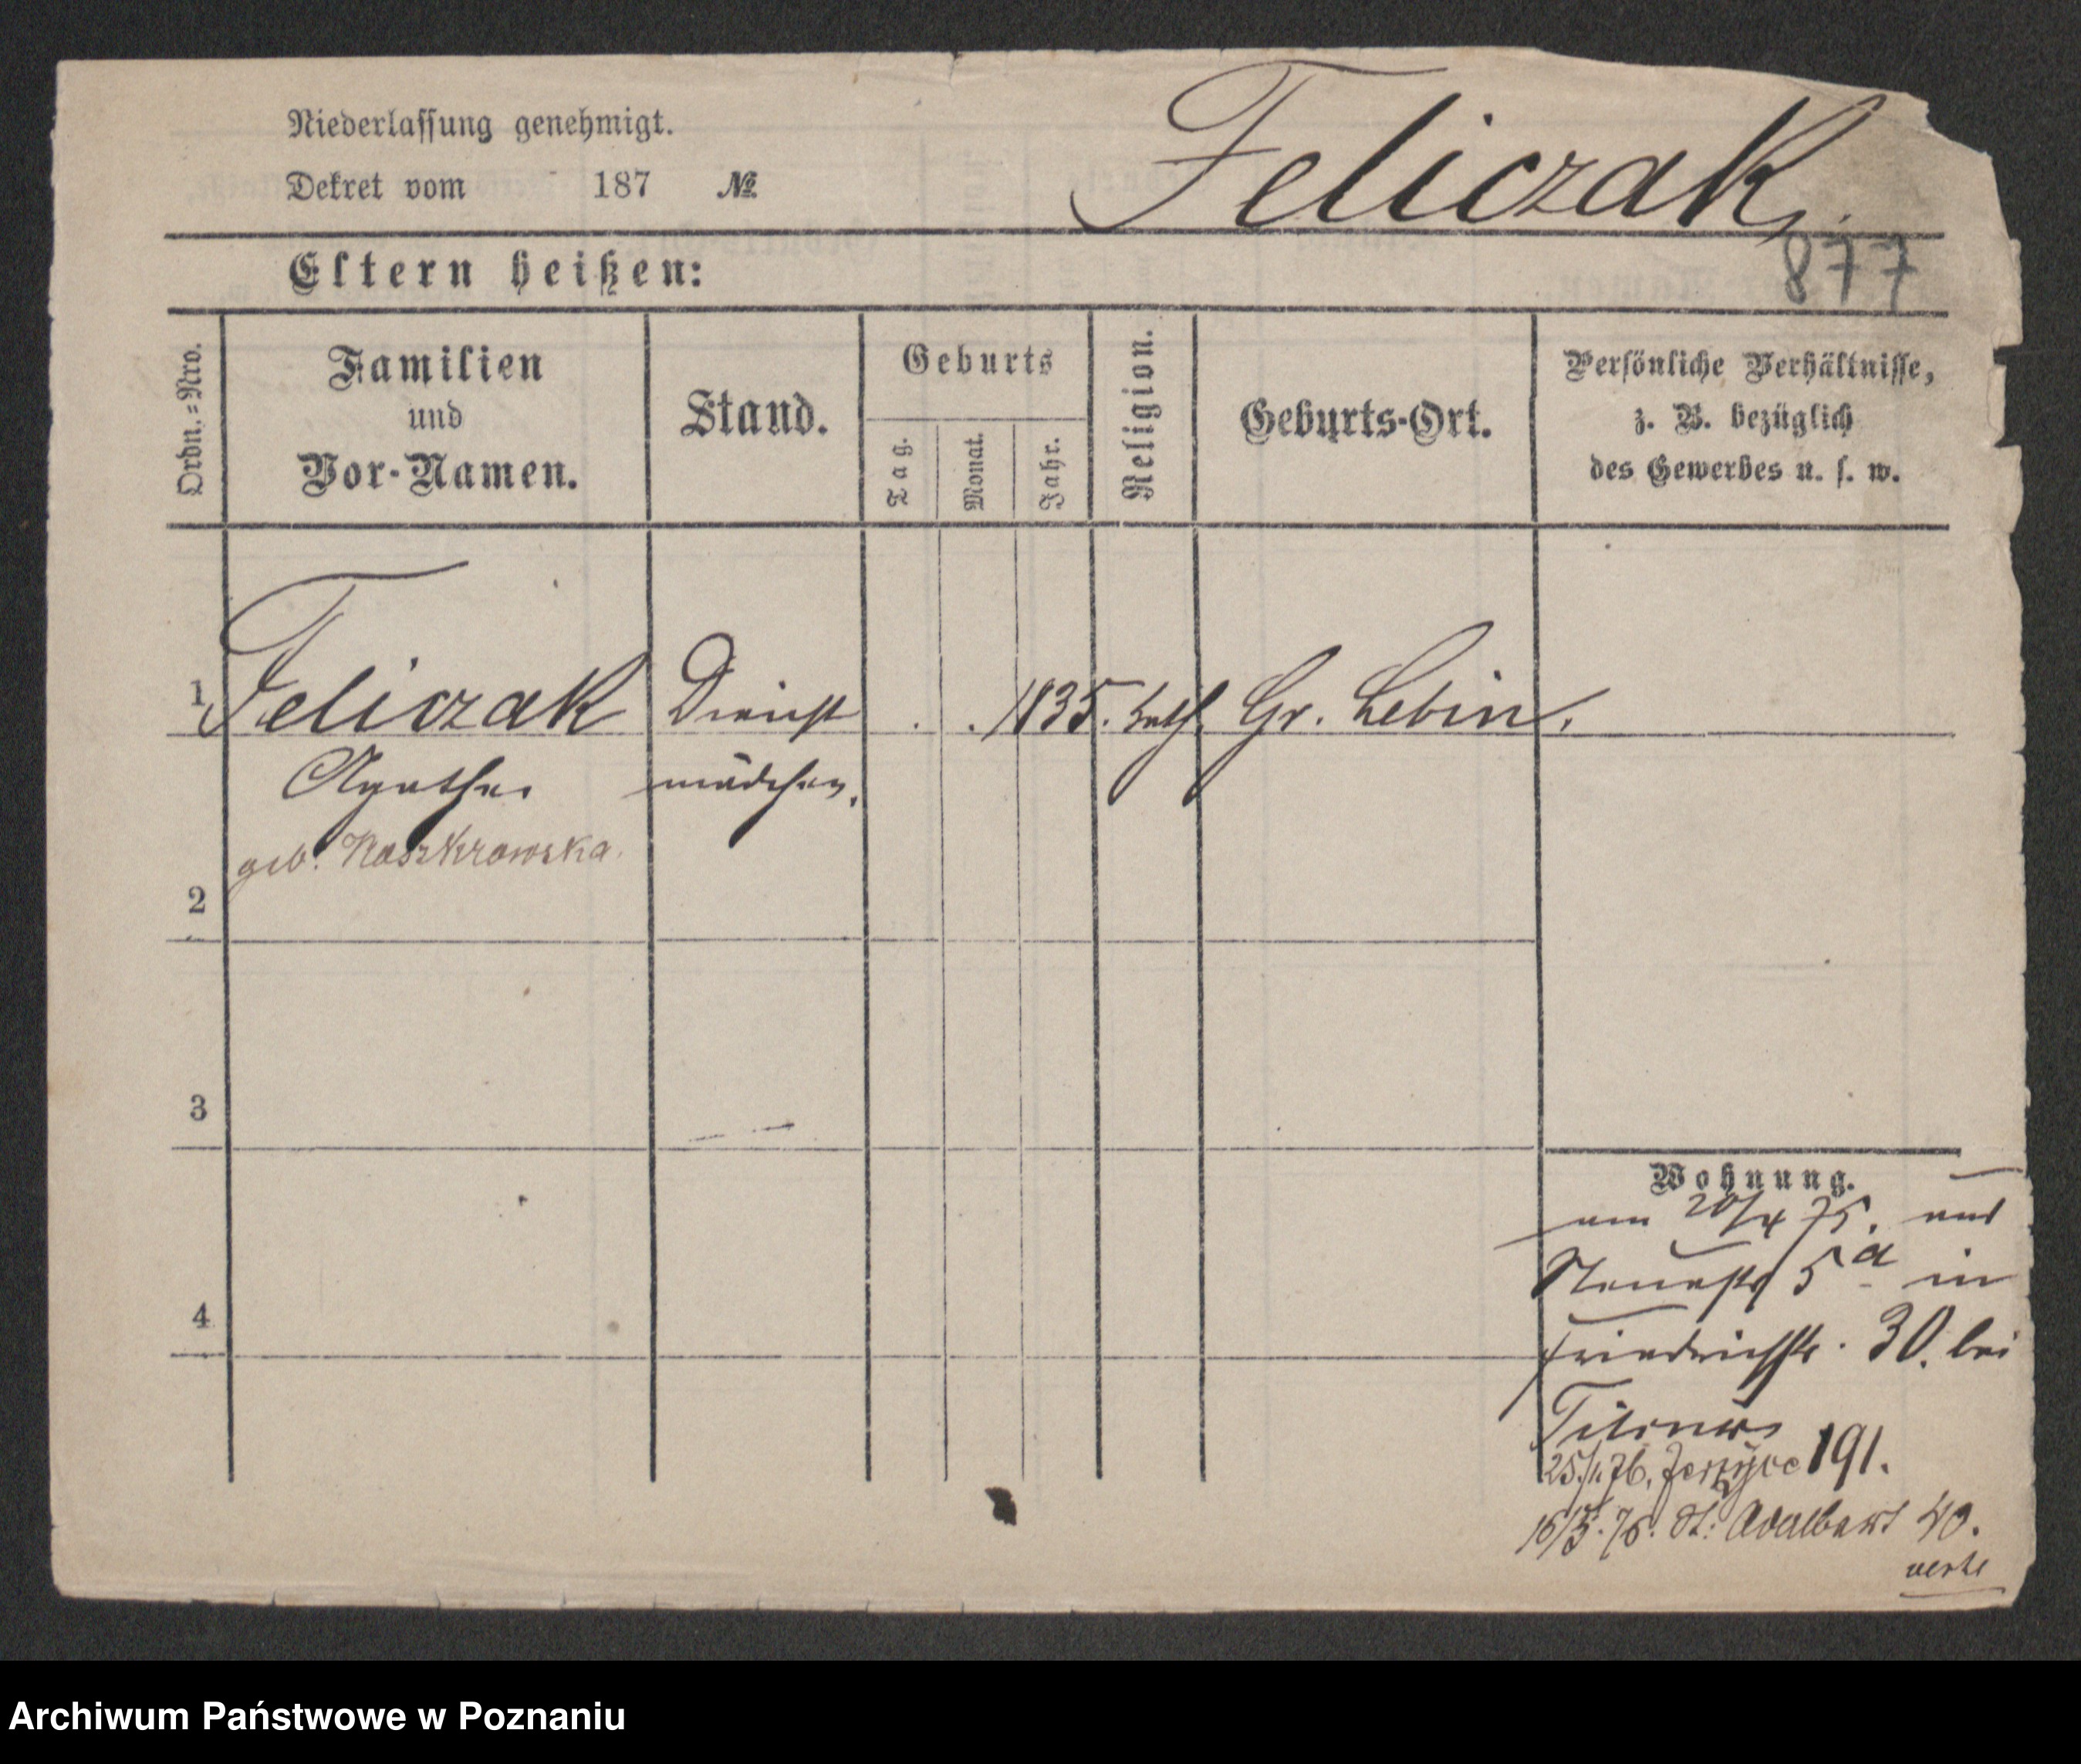 Niederlassung genehmigt.
Dekret vom 187 №
Feliczak
877
Eltern heißen:
Ordn.=Nro.
Familien
und
Vor-Namen.
Stand.
Geburts
Tag.
Monat.
Jahr.
Religion.
Geburts-Ort.
Persönliche Verhältnisse,
z. B. bezüglich
des Gewerbes u. s. w.
1 Feliczak Dienst . . 1835. kath. Gr. Lebin.
Agathe mädchen.
geb. Koszkrowska.
2
3
4
Wohnung.
am 20/4 75. aus
Neuestr 5a in
Friedrichstr. 30. bei
25./1. 76. Jerzyce 191.
16/5. 76. St: Adalbert 40.
verte
Archiwum Państwowe w Poznaniu